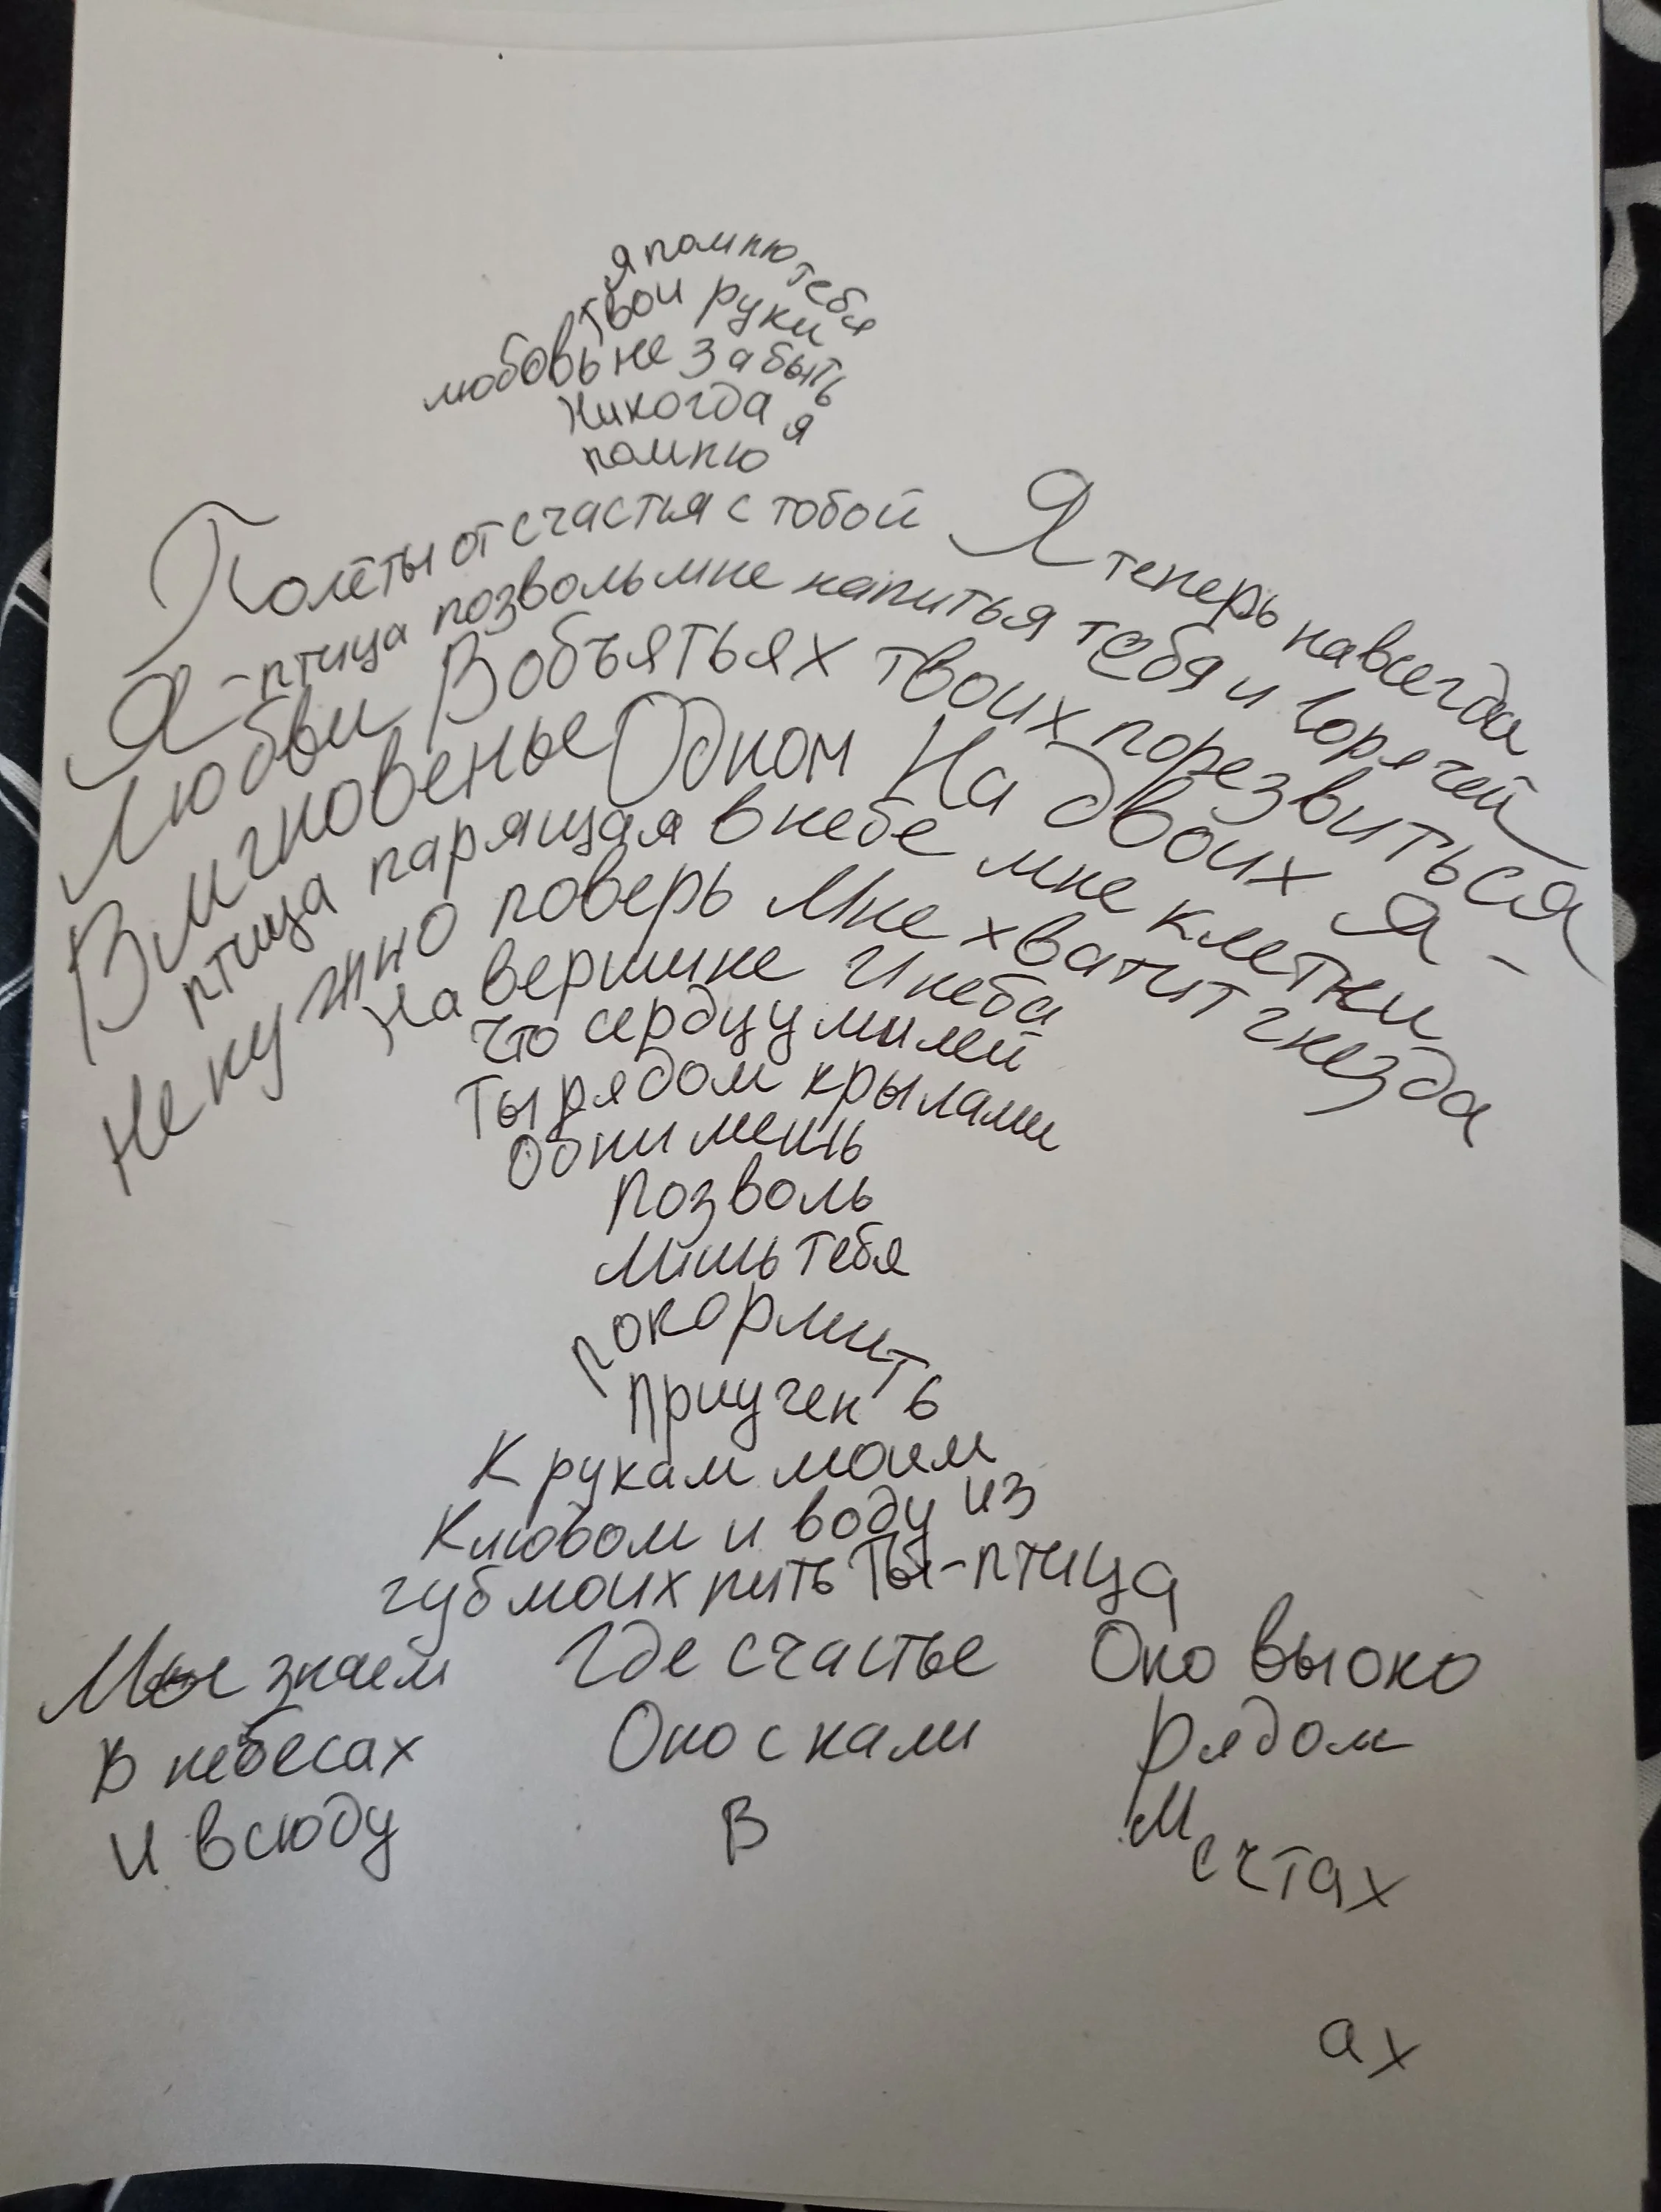 я помню тебя
твои руки
любовь не забыть
никогда я
помню
Полёты от счастья с тобой Я теперь навсегда
Я - птица позволь мне напиться тебя и горячей
Любви В объятьях твоих порезвиться
В мгновенье Одном На двоих Я -
птица парящая в небе мне клетки
Не нужно поверь Мне хватит гнезда
На вершине И неба
Что сердцу милей
Ты рядом крылами
Обнимешь
Позволь
Лишь тебя
покормить
Приучен
К рукам моим
Клювом и воду из
губ моих пить Ты - птица
Мы знаем Где счастье Оно выоко
В небесах Оно с нами Рядом
И всюду В Мечтах
ах